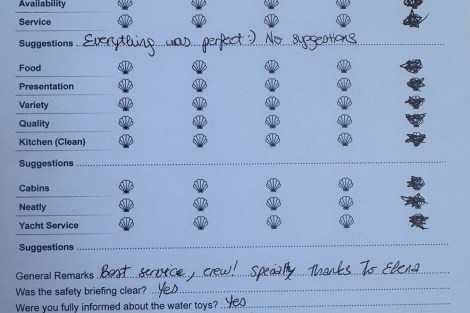 Availability
Service
Suggestions Everything was perfect :) No suggestions
Food
Presentation
Variety
Quality
Kitchen (Clean)
Suggestions
Cabins
Neatly
Yacht Service
Suggestions
General Remarks Best service, crew! Specially thanks To Elena
Was the safety briefing clear? Yes
Were you fully informed about the water toys? Yes